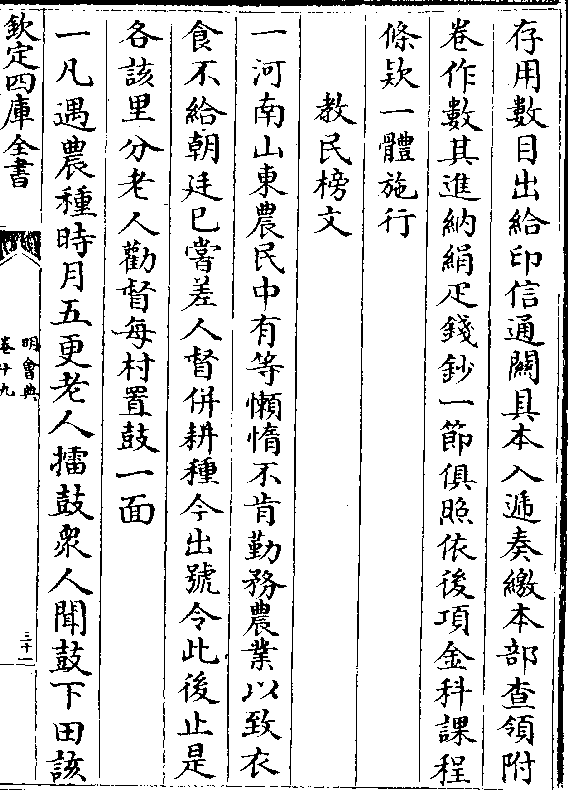 存用數目出給印信通關具本入遞奏繳本部查領附
卷作數其進納絹疋錢鈔一節俱照依後項金科課程
條欵一體施行
教民榜文
一河南山東農民中有等懶惰不肯勤務農業以致衣
食不給朝廷已嘗差人督併耕種今出號令此後止是
各該里分老人勸督每村置鼓一面
一凡遇農種時月五更老人擂鼓衆人聞鼓下田該
欽定四庫全書
明會典
卷十九
三十一